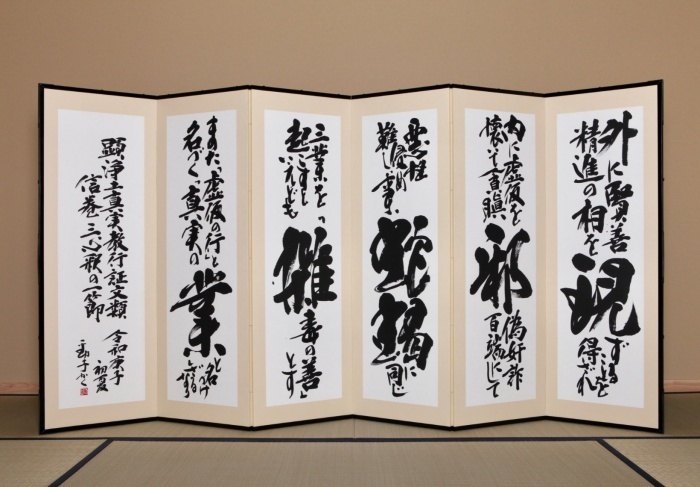 外に賢善
精進の相を
現
ずることを
得ざれ
内に虚仮を
懐いて貪瞋
邪
偽奸詐
百端にして
悪性侵め
難し事
蛇蝎
に同じ
三業を
起こすと
いえども
雑
毒の善」
とす
また「虚仮の行」と
名づく「真実の
業
」と名づけ
ざるなり
顕浄土真実教行証文類
信巻 三心釈の一節
令和庚子
初夏